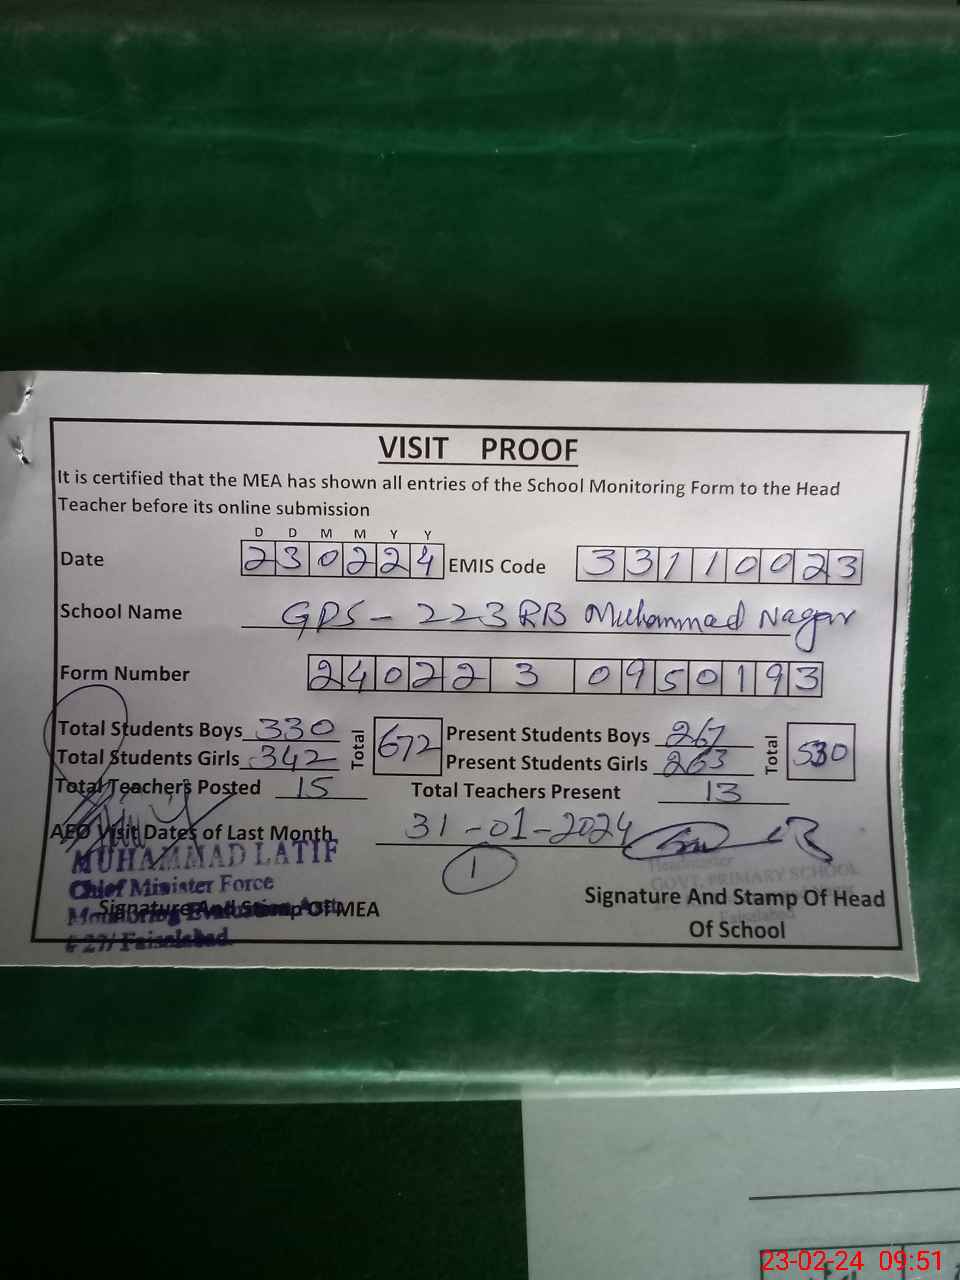 VISIT PROOF
It is certified that the MEA has shown all entries of the School Monitoring Form to the Head
Teacher before its online submission
D D M M Y Y
Date 230224 EMIS Code 33110023
School Name GPS - 223 RB Muhammad Nagar
Form Number 2402230950193
Total Students Boys 330 Total 672 Present Students Boys 267 Total 530
Total Students Girls 342 Present Students Girls 263
Total Teachers Posted 15 Total Teachers Present 13
AEO Visit Dates of Last Month 31-01-2024
1
MUHAMMAD LATIF
Chief Minister Force
Monitoring Evaluation
Faisalabad
Signature And Stamp Of MEA
GOVT. PRIMARY SCHOOL
Faisalabad
Signature And Stamp Of Head
Of School
23-02-24 09:51